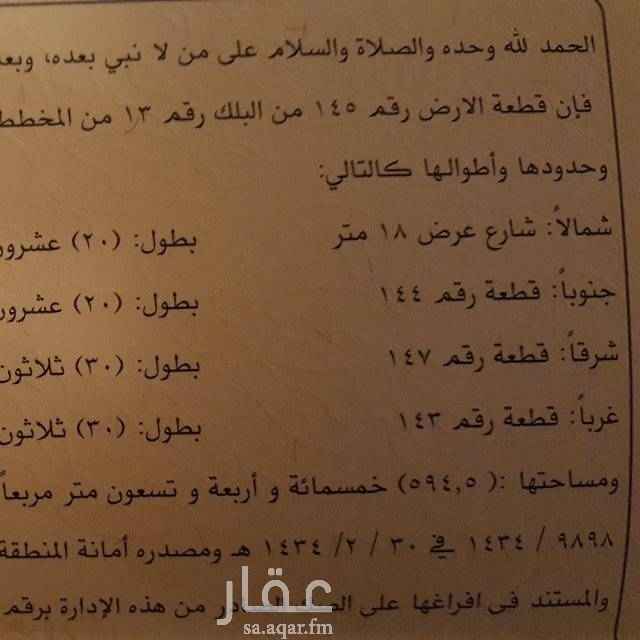 الحمد لله وحده والصلاة والسلام على من لا نبي بعده، وبعد
فإن قطعة الارض رقم ١٤٥ من البلك رقم ١٣ من المخطط
وحدودها وأطوالها كالتالي:
شمالاً: شارع عرض ١٨ متر بطول: (٢٠) عشرون
جنوباً: قطعة رقم ١٤٤ بطول: (٢٠) عشرون
شرقاً: قطعة رقم ١٤٧ بطول: (٣٠) ثلاثون
غرباً: قطعة رقم ١٤٣ بطول: (٣٠) ثلاثون
ومساحتها :( ٥٩٤,٥) خمسمائة و أربعة و تسعون متر مربعاً
٩٨٩٨ / ١٤٣٤ في ٣٠ / ٢/ ١٤٣٤ هـ ومصدره أمانة المنطقة
والمستند في افراغها على من هذه الإدارة برقم
عقار
sa.aqar.fm